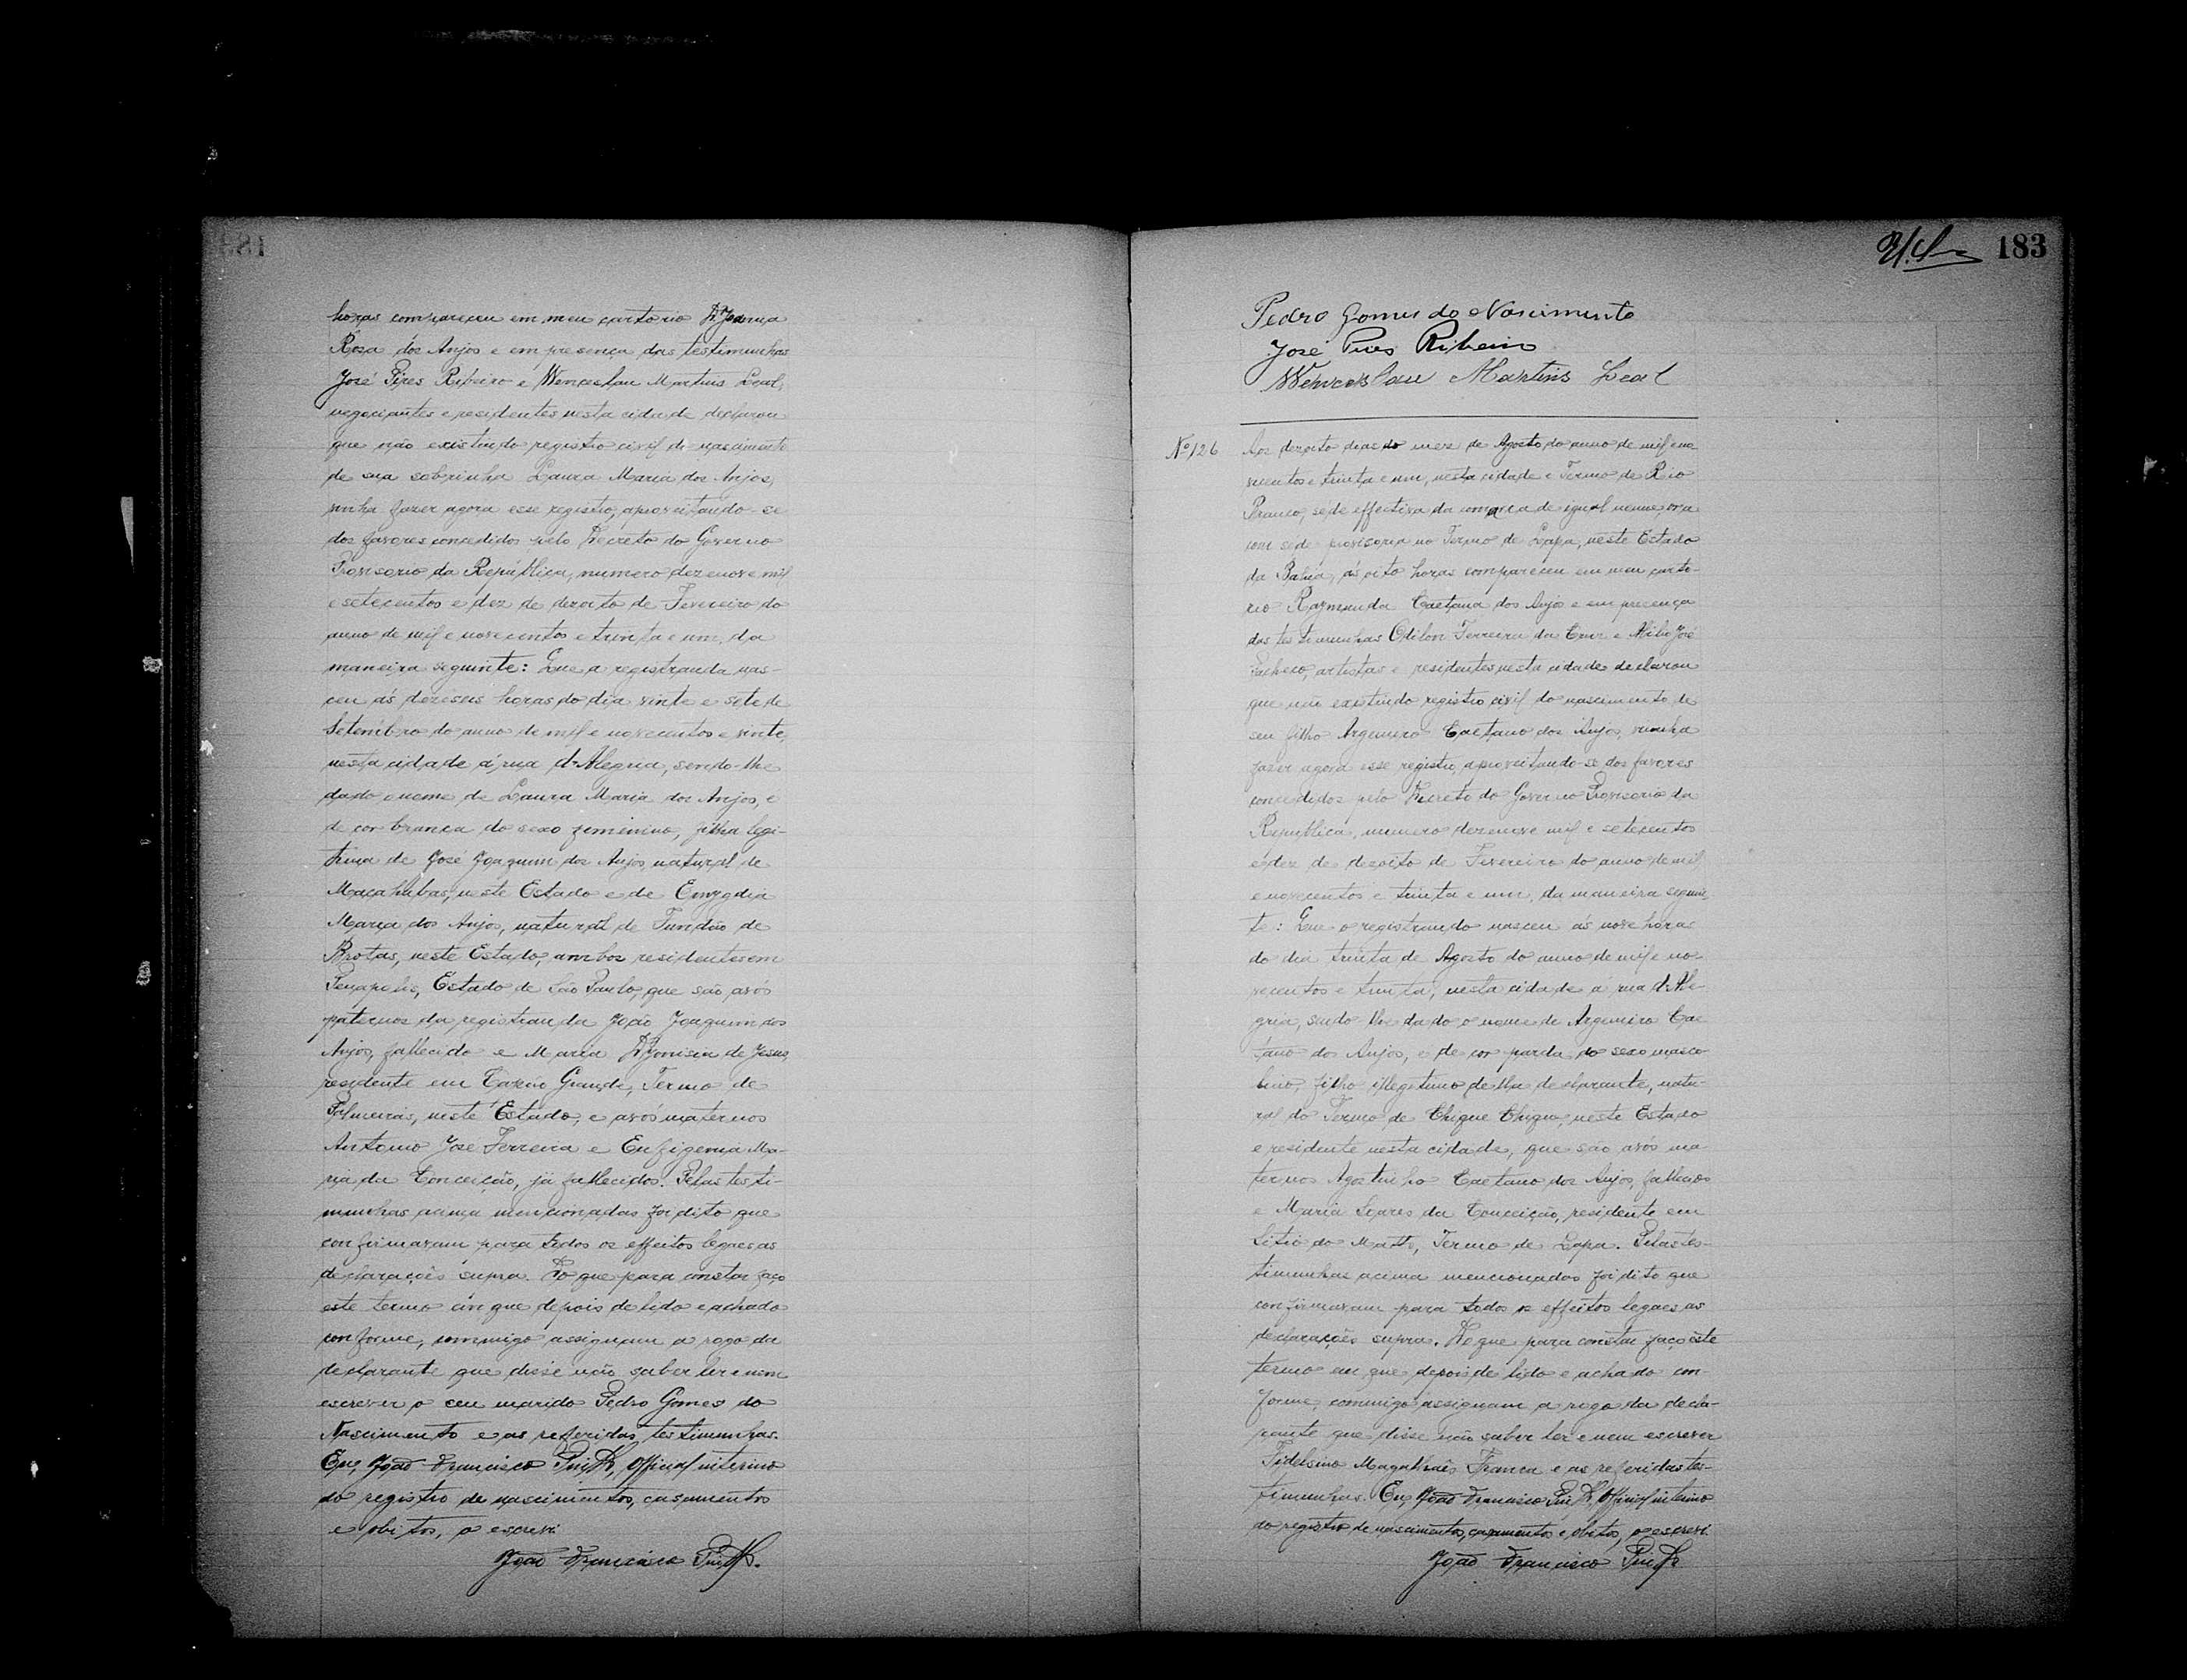 horas compareceu em meu cartorio D. Joanna
Rosa dos Anjos e em presença das testimunhas
José Pires Ribeiro e Wenceslau Martins Leal,
negociantes e residentes nesta cidade declarou
que não existindo registro civil do nascimento
de sua sobrinha Laura Maria dos Anjos,
vinha fazer agora esse registro, aproveitando-se
dos favores concedidos pelo Decreto do Governo
Provisorio da Republica, numero dezenove mil
e setecentos e dez de dezoito de Fevereiro do
anno de mil e novecentos e trinta e um, da
maneira seguinte: Que a registranda nas-
ceu ás dezeseis horas do dia vinte e sete de
Setembro do anno de mil e novecentos e vinte,
nesta cidade á rua d'Alegria, sendo-lhe
dado o nome de Laura Maria dos Anjos, e
de cor branca do sexo feminino, filha legi-
tima de José Joaquim dos Anjos, natural de
Macahubas, neste Estado e de Emygdia
Maria dos Anjos, natural de Fundão de
Brotas, neste Estado, ambos residentes em
Penapolis, Estado de São Paulo, que são avós
paternos da registranda João Joaquim dos
Anjos, fallecido e Maria Dyonisia de Jesus,
residente em Grande, Termo de
Palmeiras, neste Estado, e avós maternos
Antonio José Ferreira e Eufigenia Ma-
ria da Conceição, já fallecidos. Pelas testi-
munhas acima mencionadas foi dito que
confirmavam para todos os effeitos legaes as
declarações supra. Do que para constar faço
este termo em que depois de lido e achado
conforme, commigo assignam a rogo da
declarante que disse não saber ler e nem
escrever o seu marido Pedro Gomes do
Nascimento e as referidas testimunhas.
Eu, João Francisco, Official interino
do registro de nascimentos, casamentos
e obitos, o escrevi.
João Francisco
183
Pedro Gomes do Nascimento
José Pires Ribeiro
Wenceslau Martins Leal
Nº 126 Aos dezoito dias do mez de Agosto do anno de mil e no
vecentos e trinta e um, nesta cidade e Termo de Rio
Branco, séde effectiva da comarca de igual nome ora
com séde provisoria no Termo de Lapa, neste Estado
da Bahia, ás oito horas compareceu em meu carto-
rio Raymunda Caetana dos Anjos e em presença
das testimunhas Odilon Ferreira da Cruz e Abilio José
Pacheco, artistas e residentes nesta cidade declarou
que não existindo registro civil do nascimento de
seu filho Argemiro Caetano dos Anjos, vinha
fazer agora esse registro, aproveitando-se dos favores
concedidos pelo Decreto do Governo Provisorio da
Republica, numero dezenove mil e setecentos
e dez de dezoito de Fevereiro do anno de mil
e novecentos e trinta e um, da maneira seguin
te: Que o registrando nasceu ás nove horas
do dia trinta de Agosto do anno de mil e no-
vecentos e trinta, nesta cidade á rua d'Ale-
gria, sendo lhe dado o nome de Argemiro Cae
tano dos Anjos, e de cor parda do sexo masco
lino, filho illegitimo della declarante, natu-
ral do Termo de Chique Chique, neste Estado
e residente nesta cidade, que são avós ma-
ternos Agostinho Caetano dos Anjos, fallecido
e Maria Soares da Conceição, residente em
Sitio do Matto, Termo de Lapa. Pelas tes-
timunhas acima mencionadas foi dito que
confirmavam para todos os effeitos legaes as
declarações supra. Do que para constar faço este
termo em que depois de lido e achado con-
forme, commigo assignam a rogo da decla-
rante que disse não saber ler e nem escrever
Fidelsino Magalhães Franca e as referidas tes-
timunhas. Eu, João Francisco, Official interino
do registro de nascimentos, casamentos e obitos, o escrevi.
João Francisco